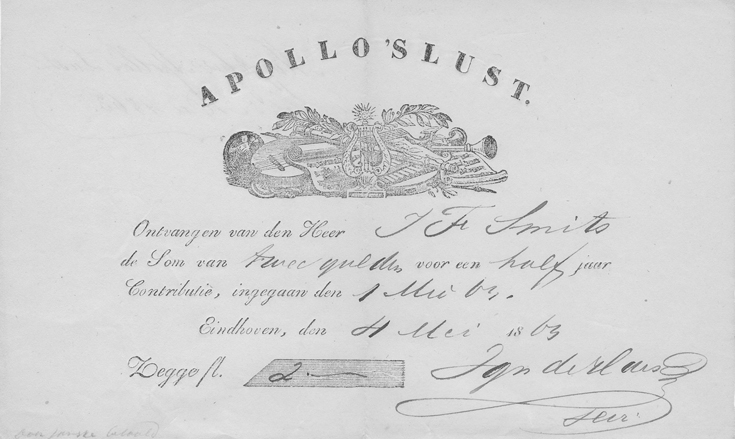 APOLLO'S LUST.
Ontvangen van den Heer J F Smits
de Som van twee gulden voor een half jaar
Contributie, ingegaan den 1 Mei 63.
Eindhoven, den 4 Mei 1863
Zegge fl. 2 —